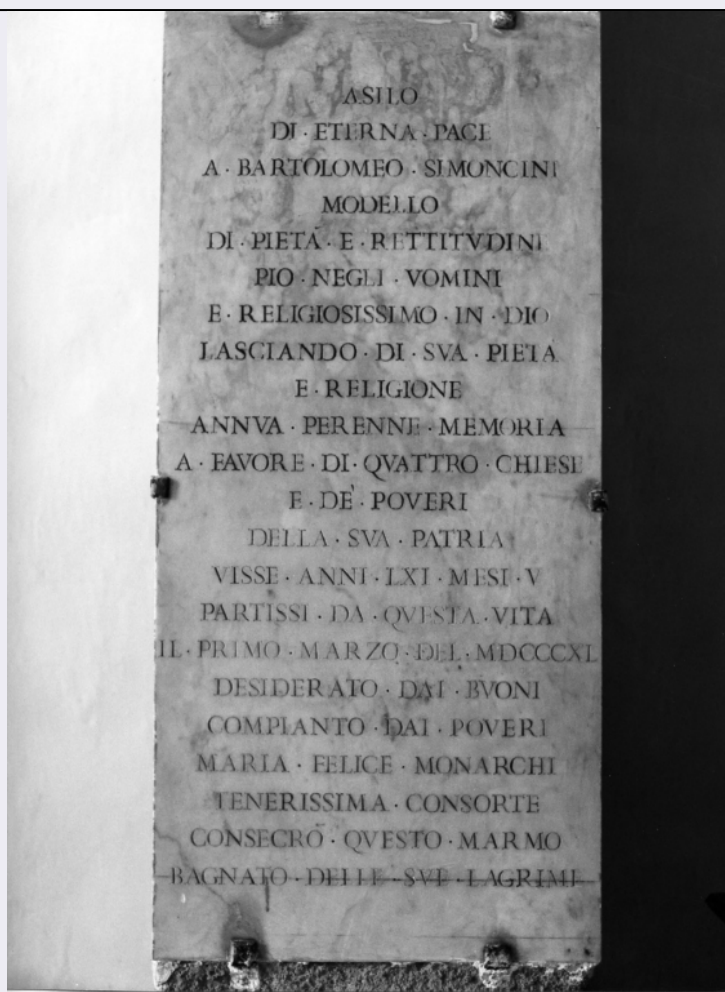 ASILO
DI · ETERNA · PACE
A · BARTOLOMEO · SIMONCINI
MODELLO
DI · PIETÀ · E · RETTITVDINE
PIO · NEGLI · VOMINI
E · RELIGIOSISSIMO · IN · DIO
LASCIANDO · DI · SVA · PIETÀ
E · RELIGIONE
ANNVA · PERENNE · MEMORIA
A · FAVORE · DI · QVATTRO · CHIESE
E · DE' · POVERI
DELLA · SVA · PATRIA
VISSE · ANNI · LXI · MESI · V
PARTISSI · DA · QVESTA · VITA
IL · PRIMO · MARZO · DEL · MDCCCXL
DESIDERATO · DAI · BVONI
COMPIANTO · DAI · POVERI
MARIA · FELICE · MONARCHI
TENERISSIMA · CONSORTE
CONSECRÒ · QVESTO · MARMO
BAGNATO · DELLE · SVE · LAGRIME